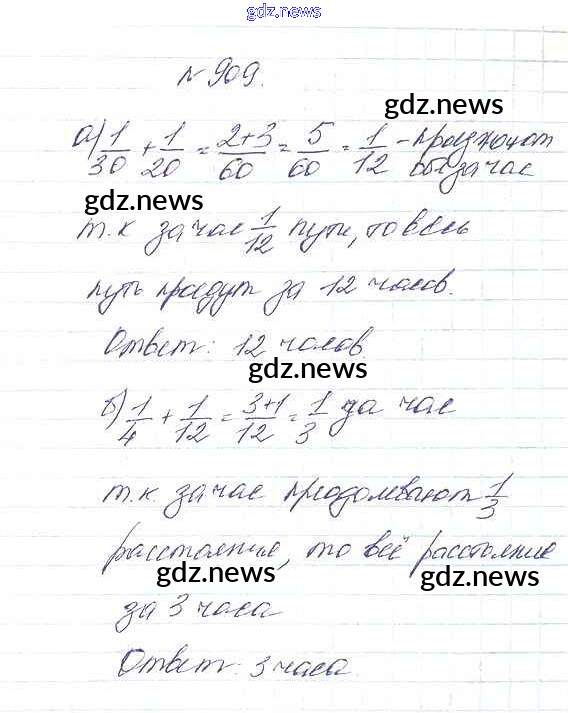 gdz.ru
№909.
gdz.news
а) 1/30 + 1/20 = 2+3/60 = 5/60 = 1/12 -
за час
gdz.news
т.к за час 1/12 пути, то весь
путь пройдут за 12 часов.
Ответ: 12 часов
gdz.news
б) 1/4 + 1/12 = 3+1/12 = 1/3 за час
т.к. за час преодолевают 1/3
расстояния, то всё расстояние
gdz.news gdz.news
за 3 часа
Ответ: 3 часа.
gdz.news